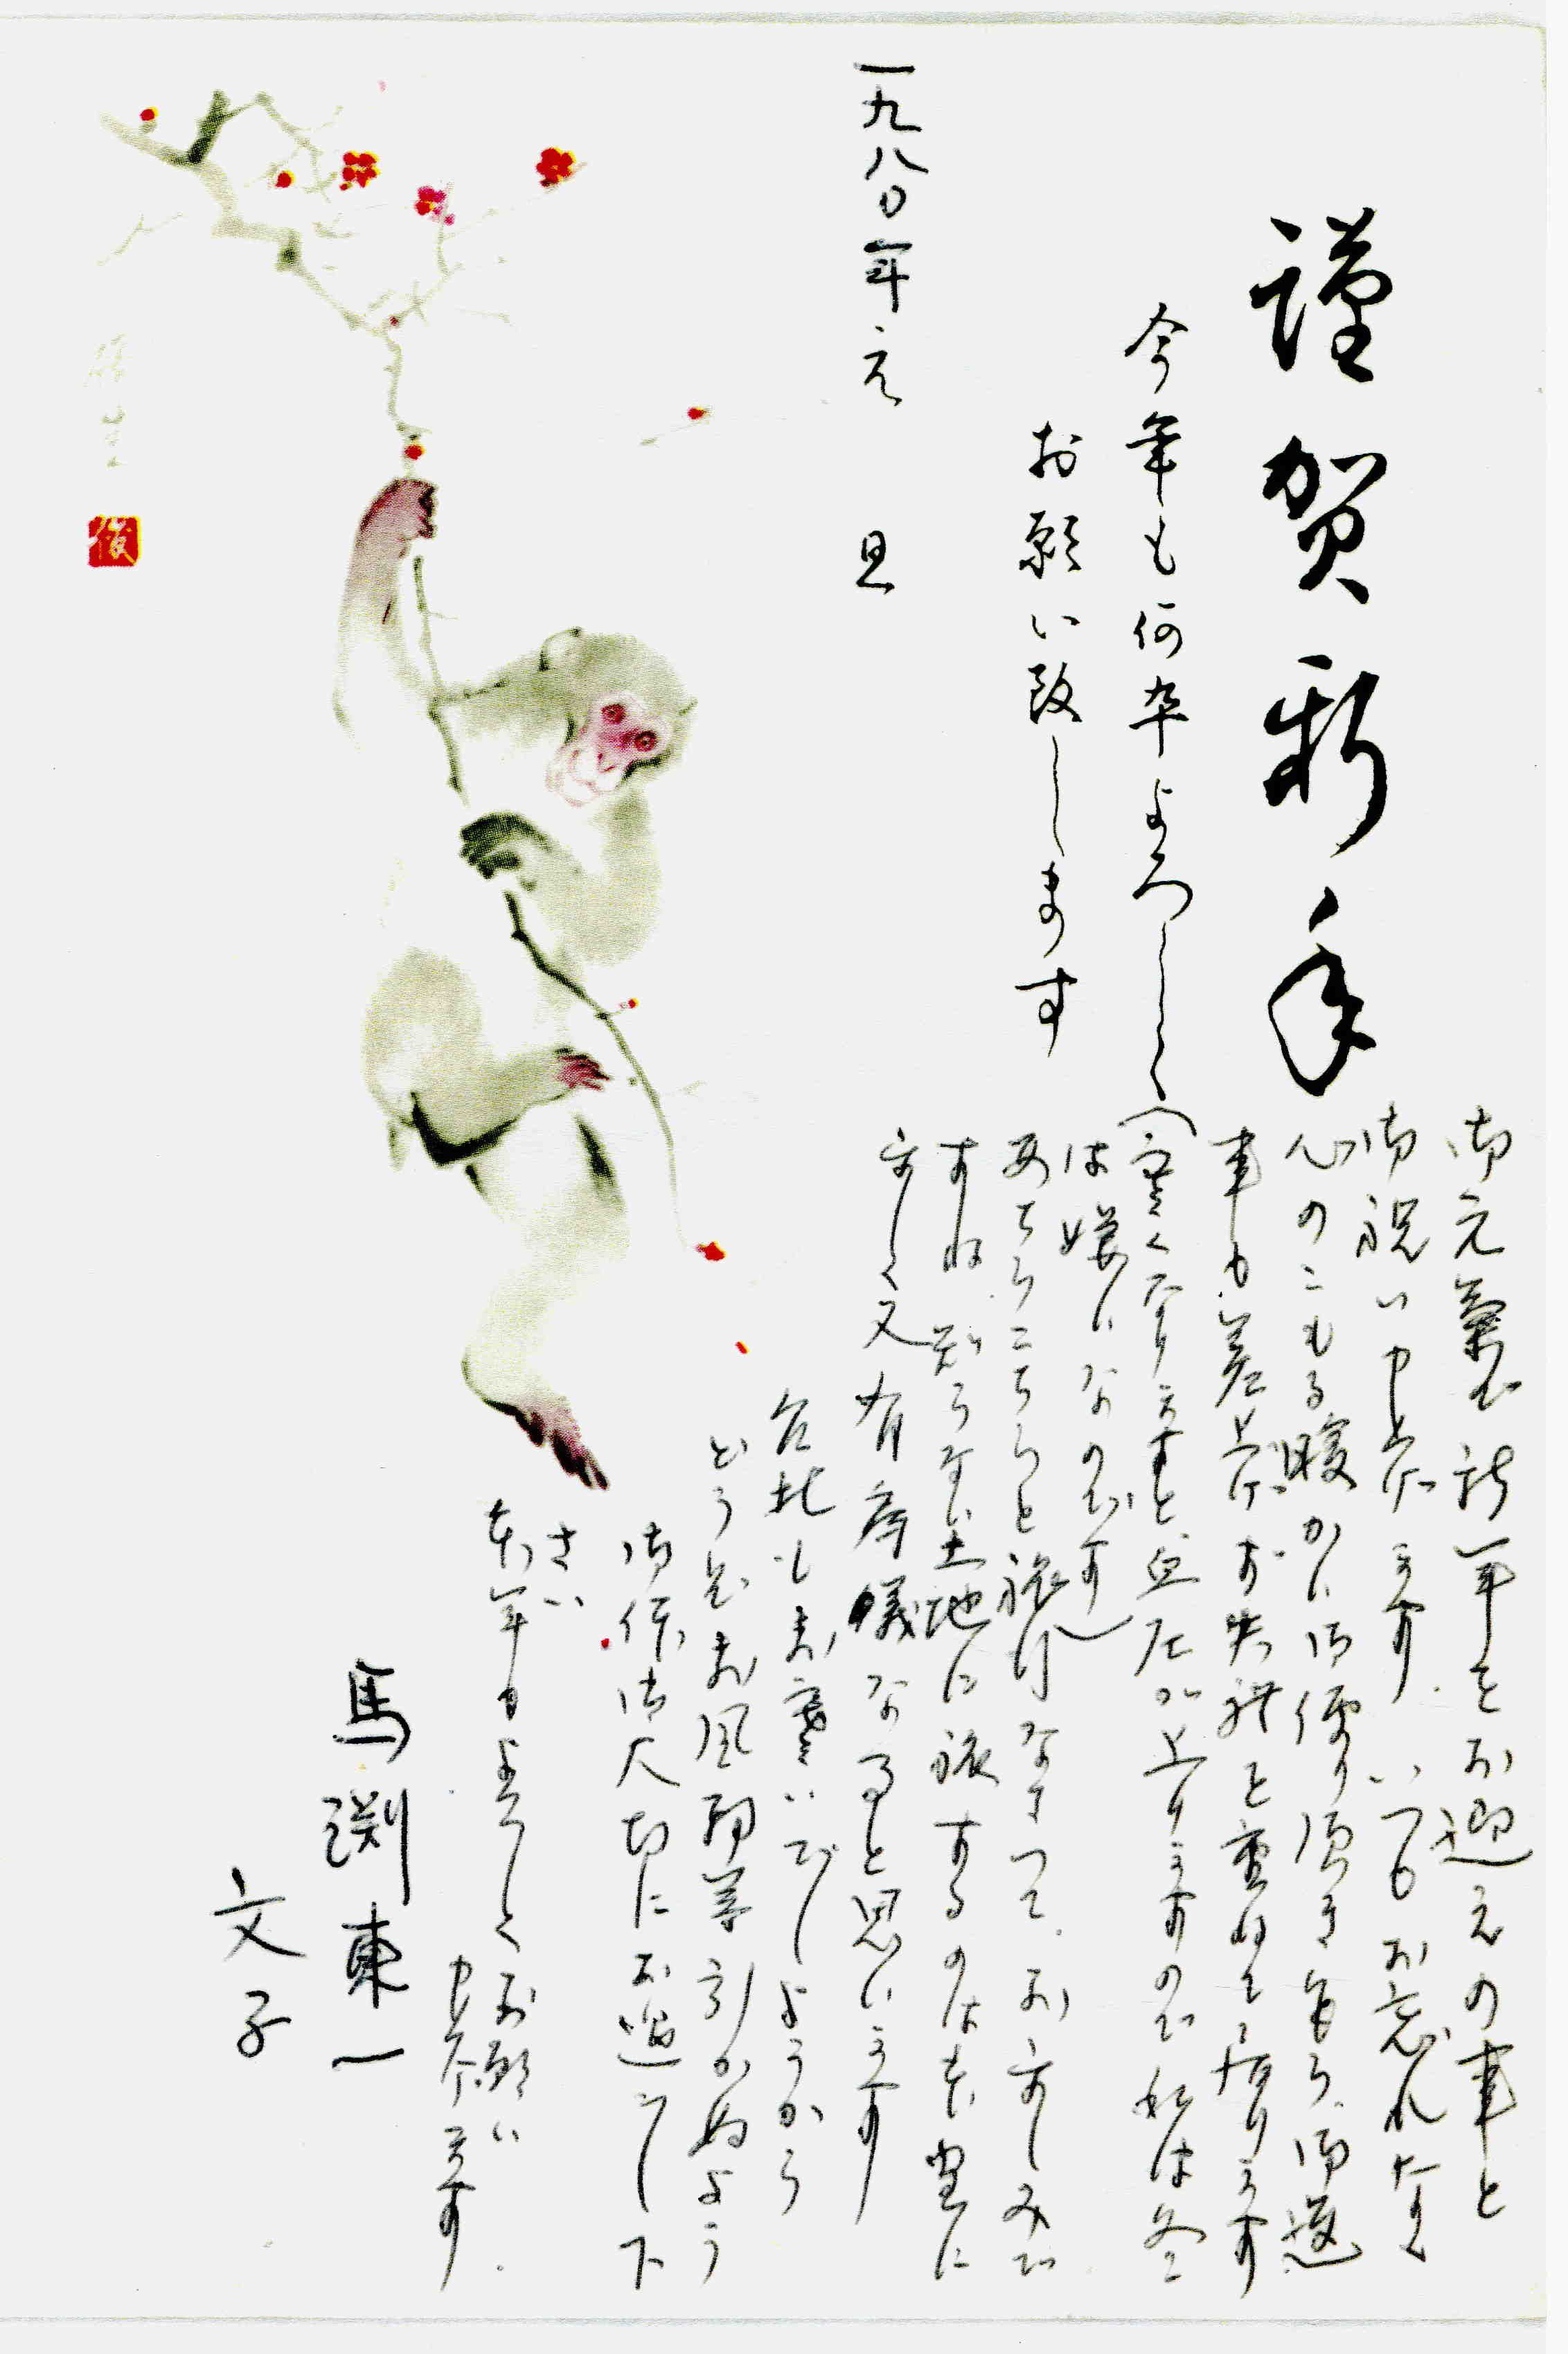 謹賀新年
今年も何卒よろしく
お願い致します
一九八〇年元旦
御元気で新年をお迎えの事と
御祝い申上げます。いつもお忘れなく
心のこもる暖かい御便り頂き乍ら、御返
事も差上げず失礼を重ねて居ります
(寒くなりますと血圧が上りますので私は冬
は嫌いなのです)
あちらこちらと旅行なさって、お楽しみで
すね 知らない土地に旅するのは本当に
楽しく又有意義なる事と思います
台北もお寒いでしょうから
どうぞお風邪等引かぬよう
御体御大切にお過し下
さい
本年もよろしくお願い
申上げます。
馬渕東一
文子